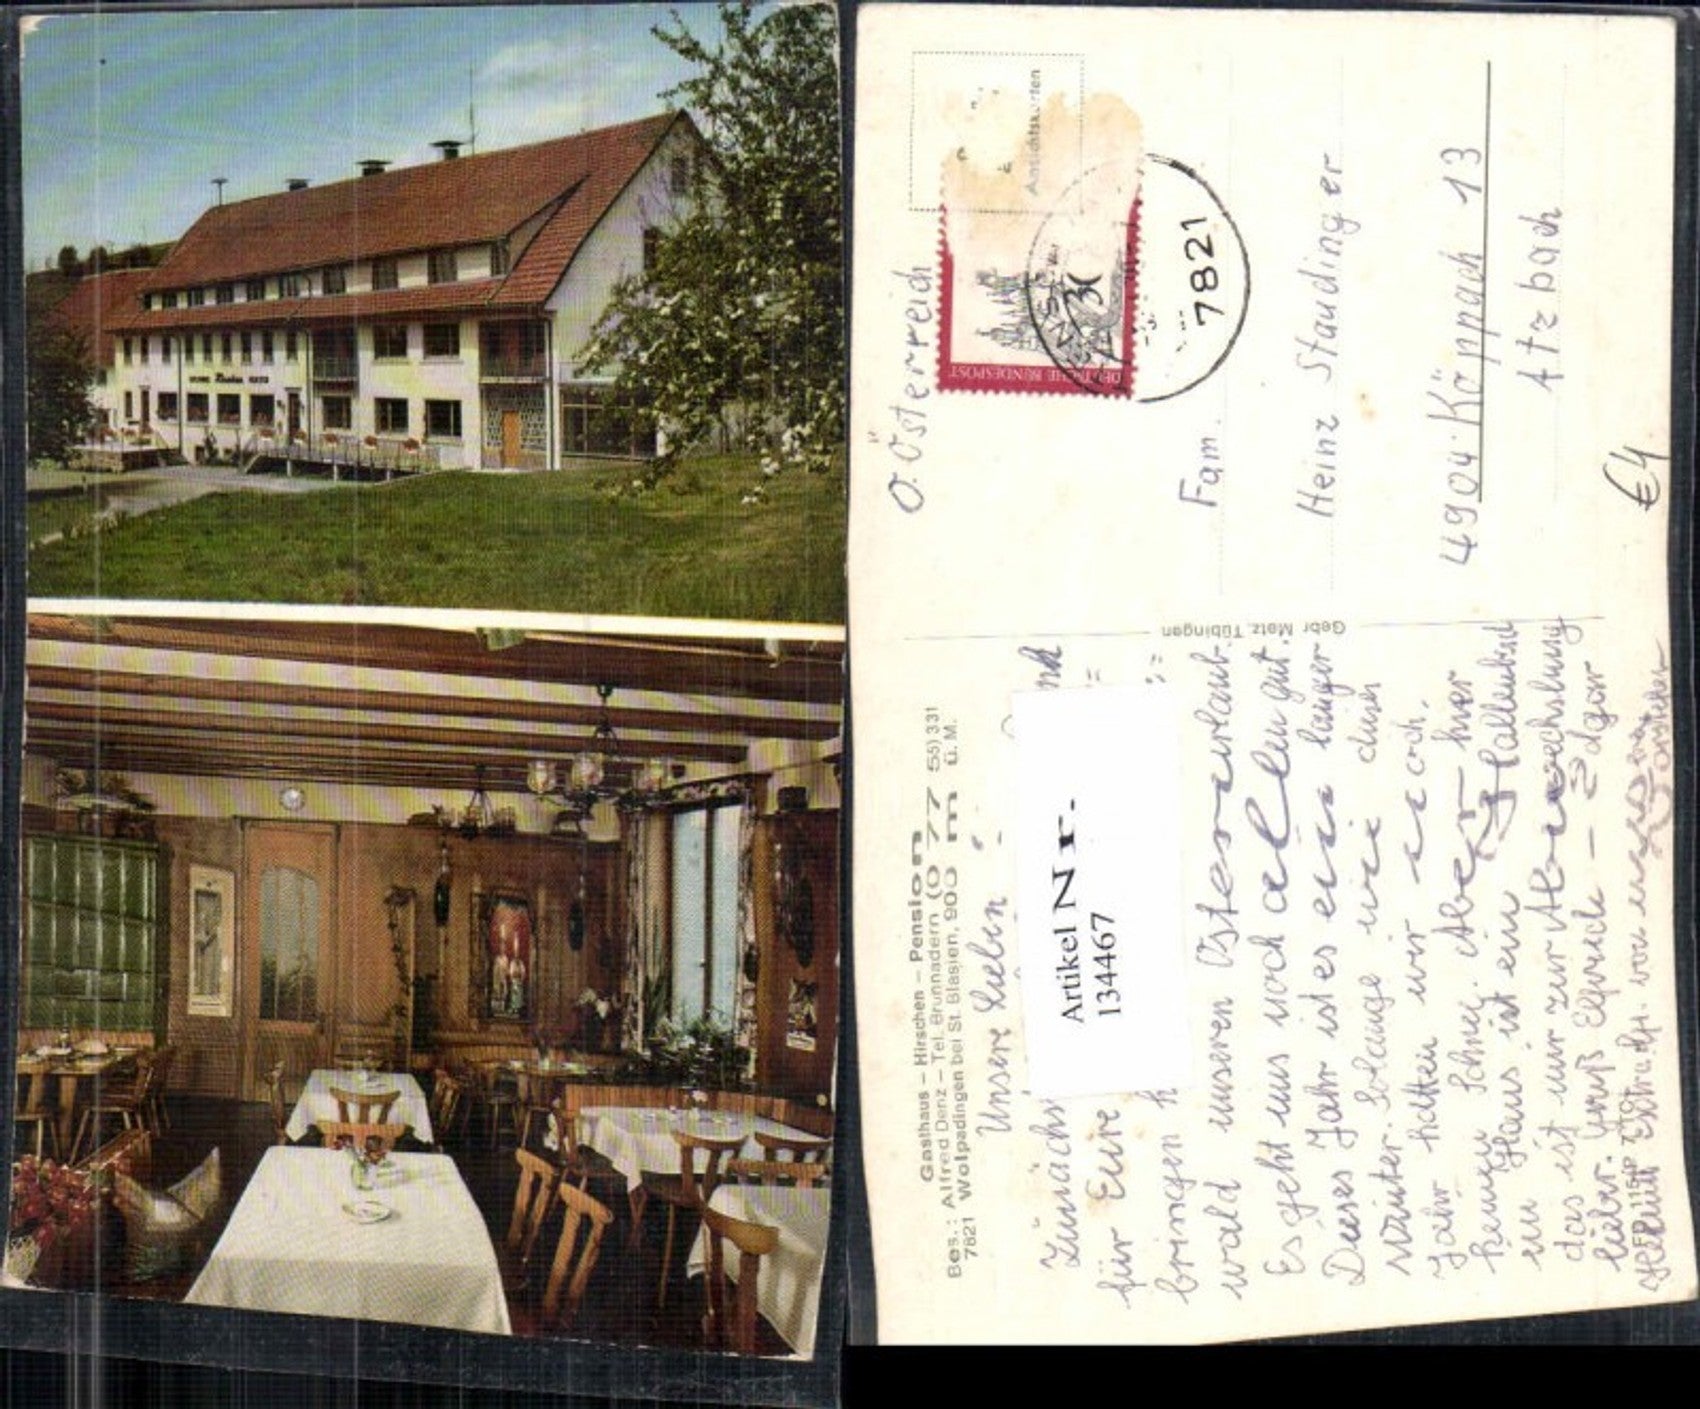 Gasthaus – Hirschen – Pension
Bes.: Alfred Denz – Tel. Brunnadern (0 77 55) 331
7821 Wolpadingen bei St. Blasien, 900 m ü. M.
Unsere Lieben
für Eure
bringen
wald unseren Osterurlaub.
Es geht uns noch allen gut.
Dieses Jahr ist es ein langer
Winter. Solange wie dieses
Jahr hatten wir noch
keinen Schnee. Aber hier
im Haus ist ein Hallenbad
das ist nur zur Abwechslung
lieber. Gruß Elfriede – Edgar
Gebr. Metz, Tübingen
Artikel Nr.
134467
Ansichtskarten
DEUTSCHE BUNDESPOST
30
7821
O. Österreich
Fam.
Heinz Staudinger
4904 Köppach 13
Atzbach
€4